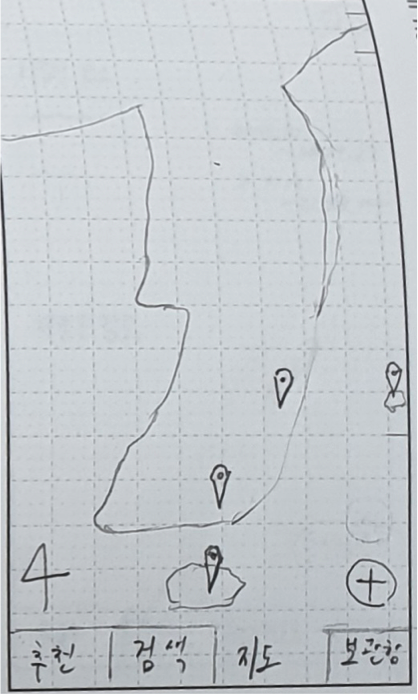 4
추천 검색 지도 보관함